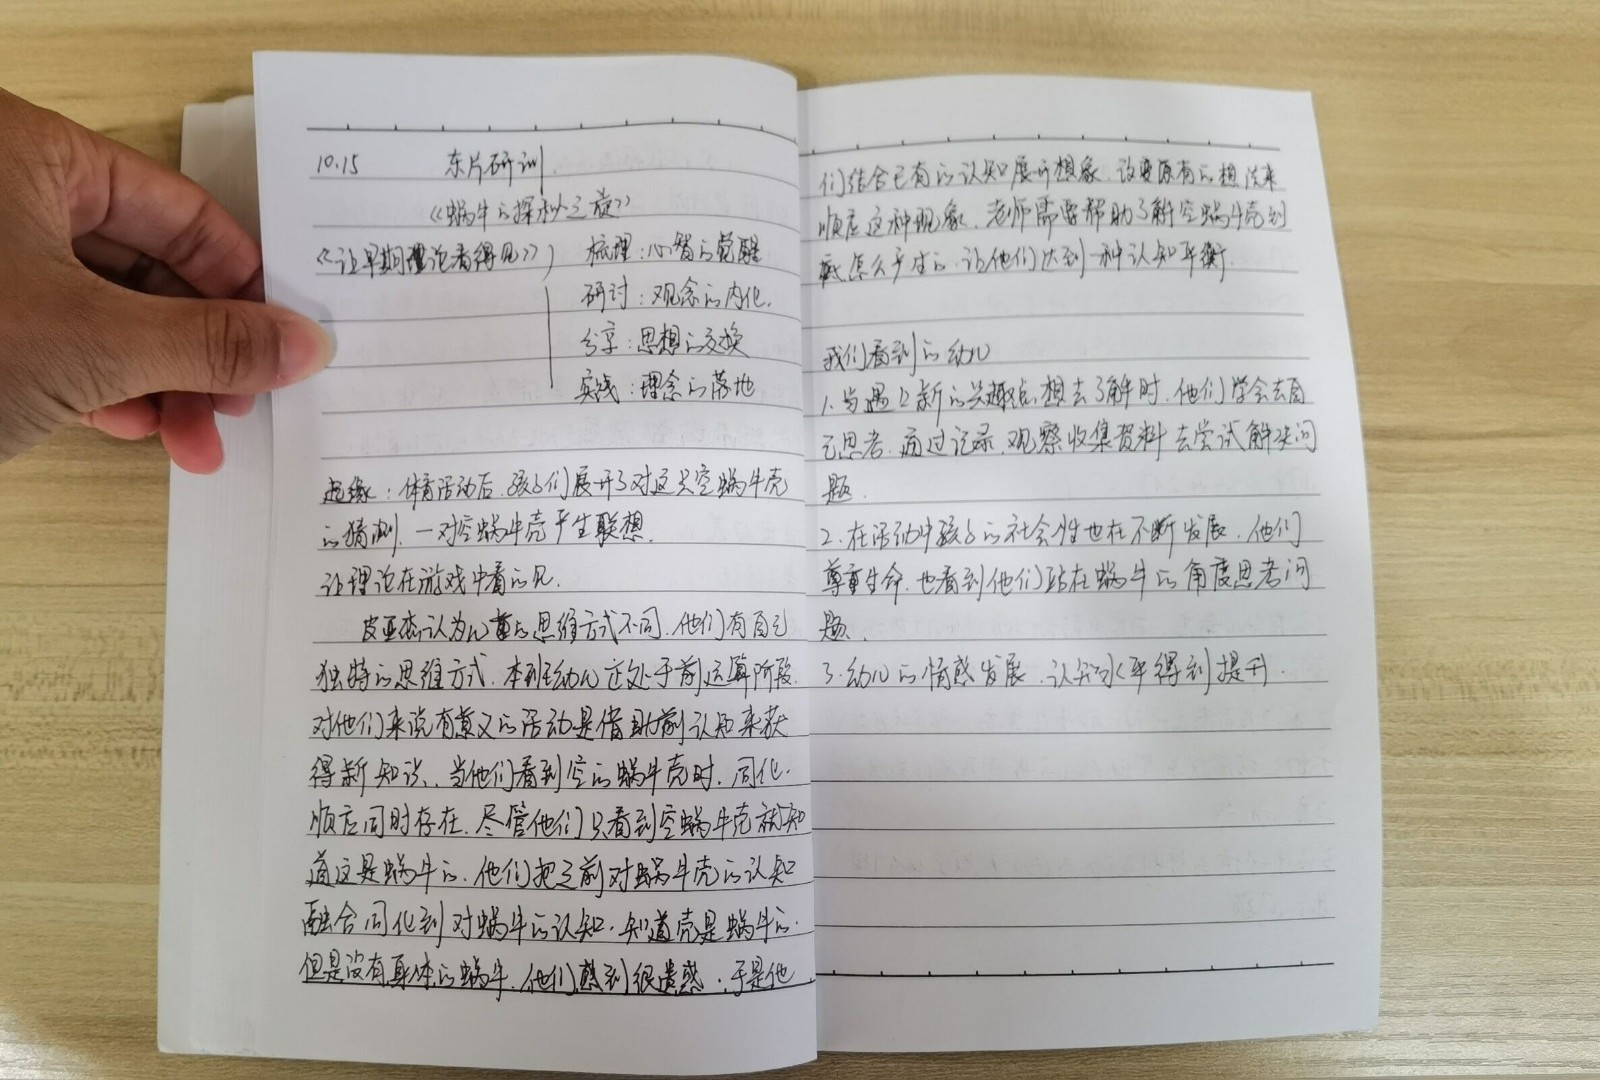 10.15 东片研训
《蜗牛的探秘之旅》
《让早期理论看得见》 梳理：心智的觉醒
研讨：观念的内化.
分享：思想的交换
实践：理念的落地
起缘：体育活动后.孩子们展开了对这只空蜗牛壳
的猜测.一对空蜗牛壳产生联想.
让理论在游戏中看的见.
皮亚杰认为儿童的思维方式不同.他们有自己
独特的思维方式.本班幼儿正处于前运算阶段.
对他们来说有意义的活动是借助前认知来获
得新知识、当他们看到空的蜗牛壳时.同化.
顺应同时存在.尽管他们只看到空蜗牛壳就知
道这是蜗牛的.他们把之前对蜗牛壳的认知
融合同化到对蜗牛的认知.知道壳是蜗牛的.
但是没有身体的蜗牛.他们感到很遗憾.于是他
们结合已有的认知展开想象.改变原有的想法来
顺应这种现象.老师需要帮助了解空蜗牛壳到
底怎么产生的.让他们达到一种认知平衡.
我们看到的幼儿
1.当遇上新的兴趣点想去了解时.他们学会去自
己思考.通过记录.观察收集资料去尝试解决问
题.
2.在活动中孩子的社会性也在不断发展.他们
尊重生命.也看到他们站在蜗牛的角度思考问
题.
3.幼儿的情感发展.认知水平得到提升.